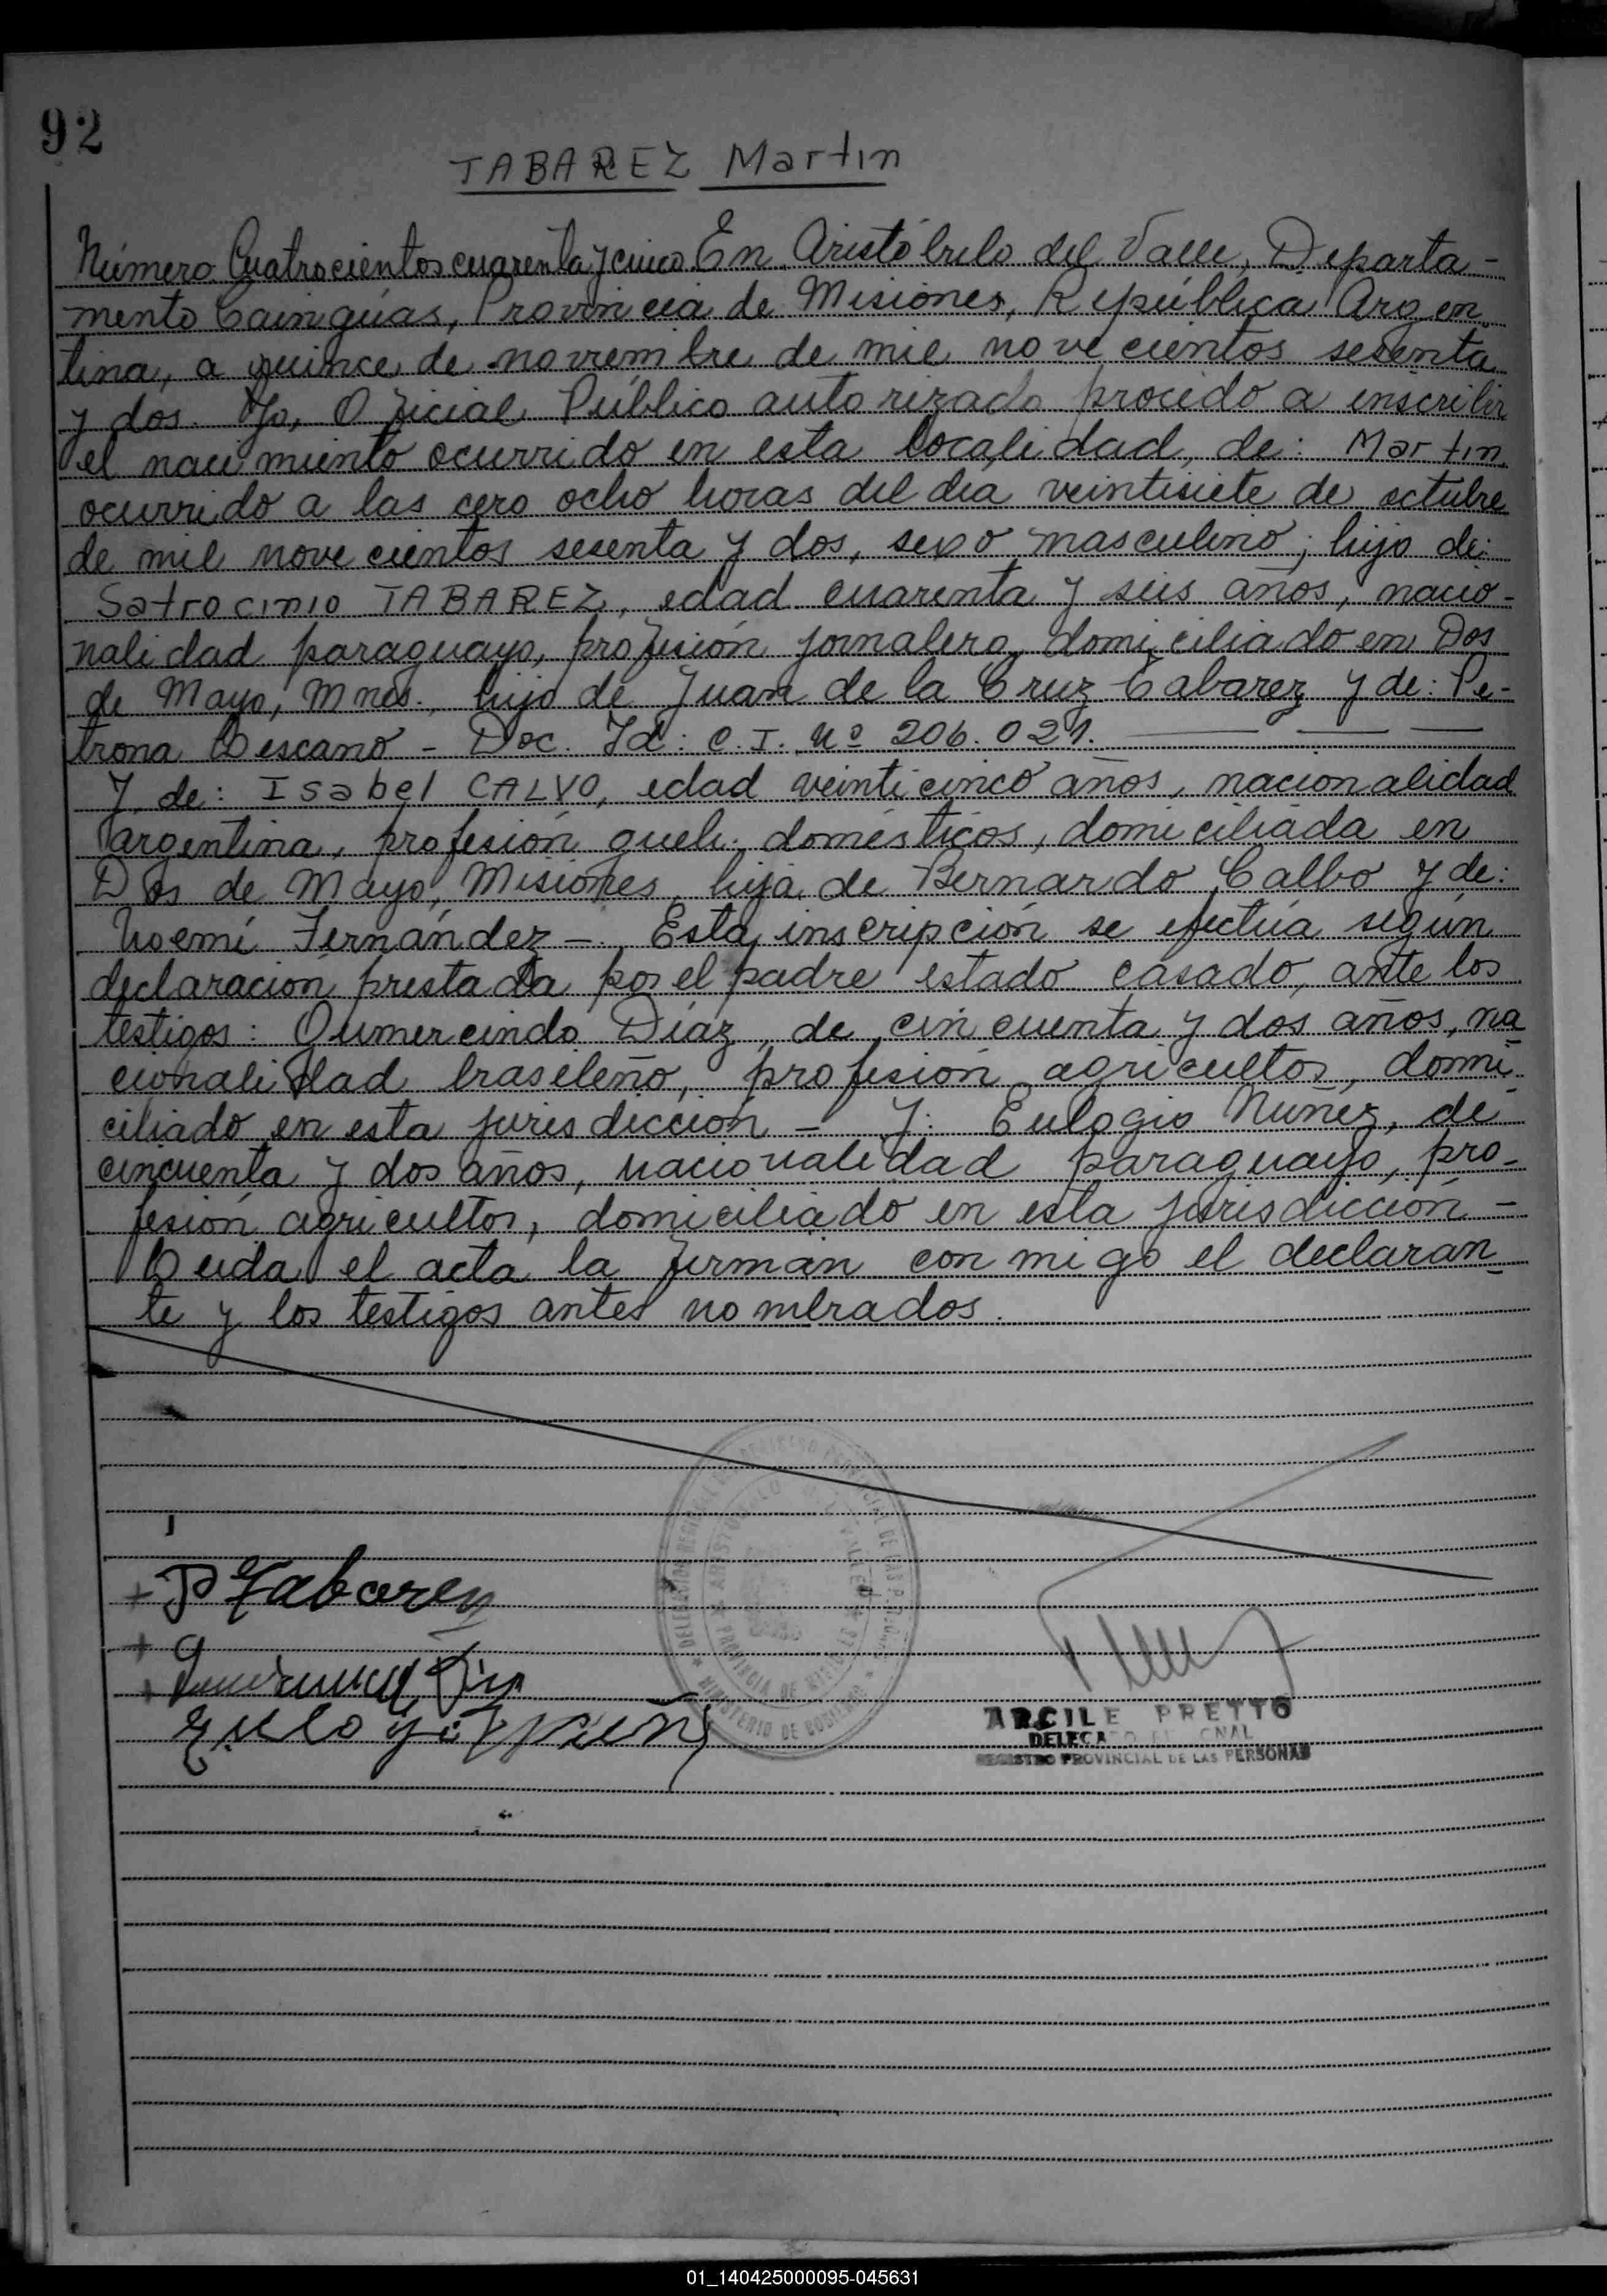 92
TABAREZ Martin
Número Cuatrocientos cuarenta y cinco En Aristóbulo del Valle, Departa-
mento Cainguas, Provincia de Misiones, República Argen
tina, a quince de noviembre de mil novecientos sesenta
y dos. Yo, Oficial Público autorizado procedo a inscribir
el nacimiento ocurrido en esta localidad, de: Martin
ocurrido a las cero ocho horas del dia veintisiete de octubre
de mil novecientos sesenta y dos, sexo masculino; hijo de:
Satrocinio TABAREZ, edad cuarenta y seis años, nacio-
nalidad paraguayo, profesión jornalero, domiciliado en Dos
de Mayo, Mnes., hijo de Juan de la Cruz Tabarez y de: Pe-
trona Lescano - Doc. Id: C.I. Nº 206.021.
Y de: Isabel CALVO, edad veinticinco años, nacionalidad
argentina, profesión queh. domésticos, domiciliada en
Dos de Mayo, Misiones, hija de Bernardo Calbo y de:
Noemí Fernández - Esta inscripción se efectúa según
declaración prestada por el padre estado casado, ante los
testigos: Gumercindo Díaz, de cincuenta y dos años, na
cionalidad brasileño, profesión agricultor, domi
ciliado en esta jurisdicción - Y: Eulogio Nuñez, de
cincuenta y dos años, nacionalidad paraguayo, pro-
fesión agricultor, domiciliado en esta jurisdicción -
Leida el acta la firman conmigo el declaran
te y los testigos antes nombrados.
P Tabarez
ARCILE PRETTO
REGISTRO PROVINCIAL DE LAS PERSONAS
PROVINCIA DE MISIONES
MINISTERIO DE GOBIERNO
01_140425000095-045631